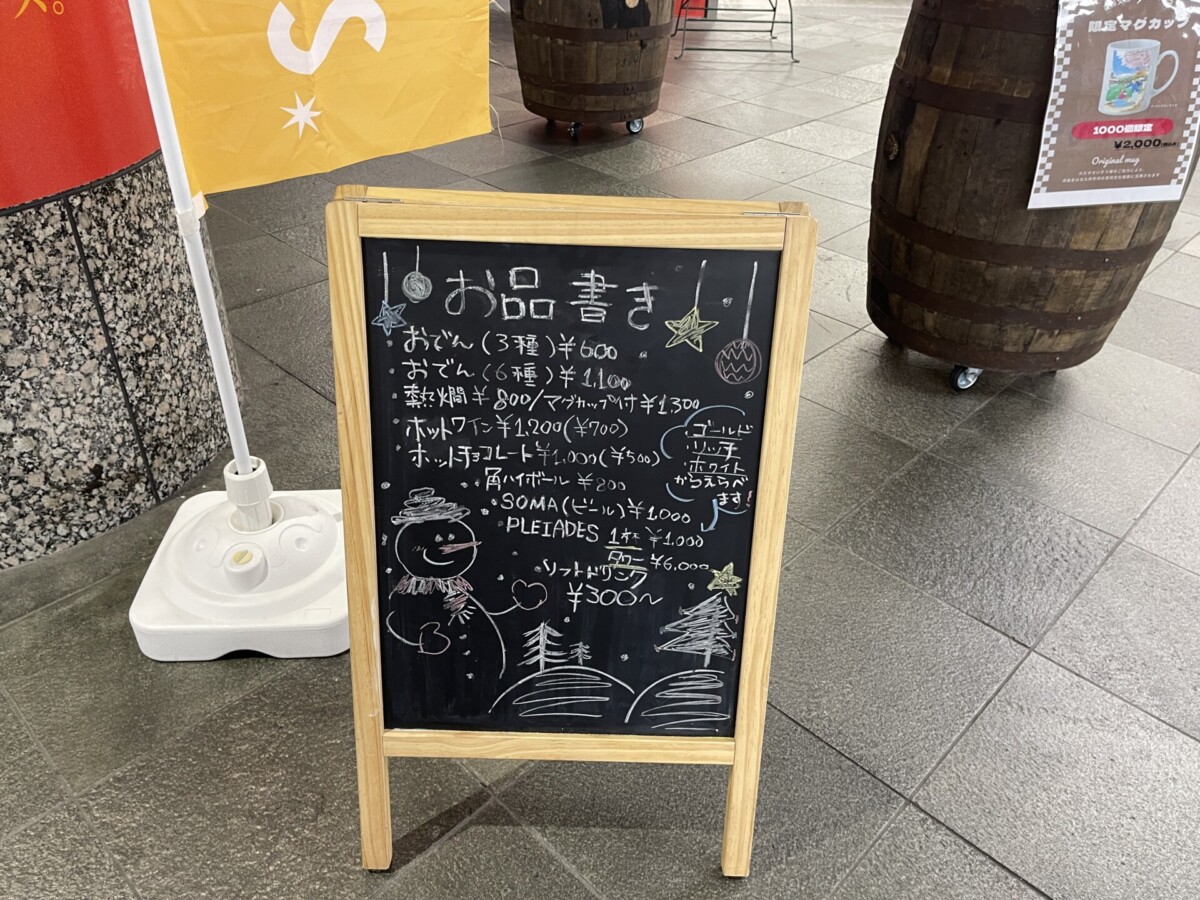 ス。
S
お品書き
おでん(3種)¥600
おでん(6種)¥1,100
熱燗¥800/マグカップ付¥1,300
ホットワイン¥1,200(¥700)
ホットチョコレート¥1,000(¥500)
角ハイボール ¥800
SOMA(ビール)¥1,000
PLEIADES 1杯 ¥1,000
タワー ¥6,000
ソフトドリンク
¥300〜
ゴールド
リッチ
ホワイト
からえらべ
ます!
限定マグカップ
1000個限定
¥2,000(税込)
Original mug